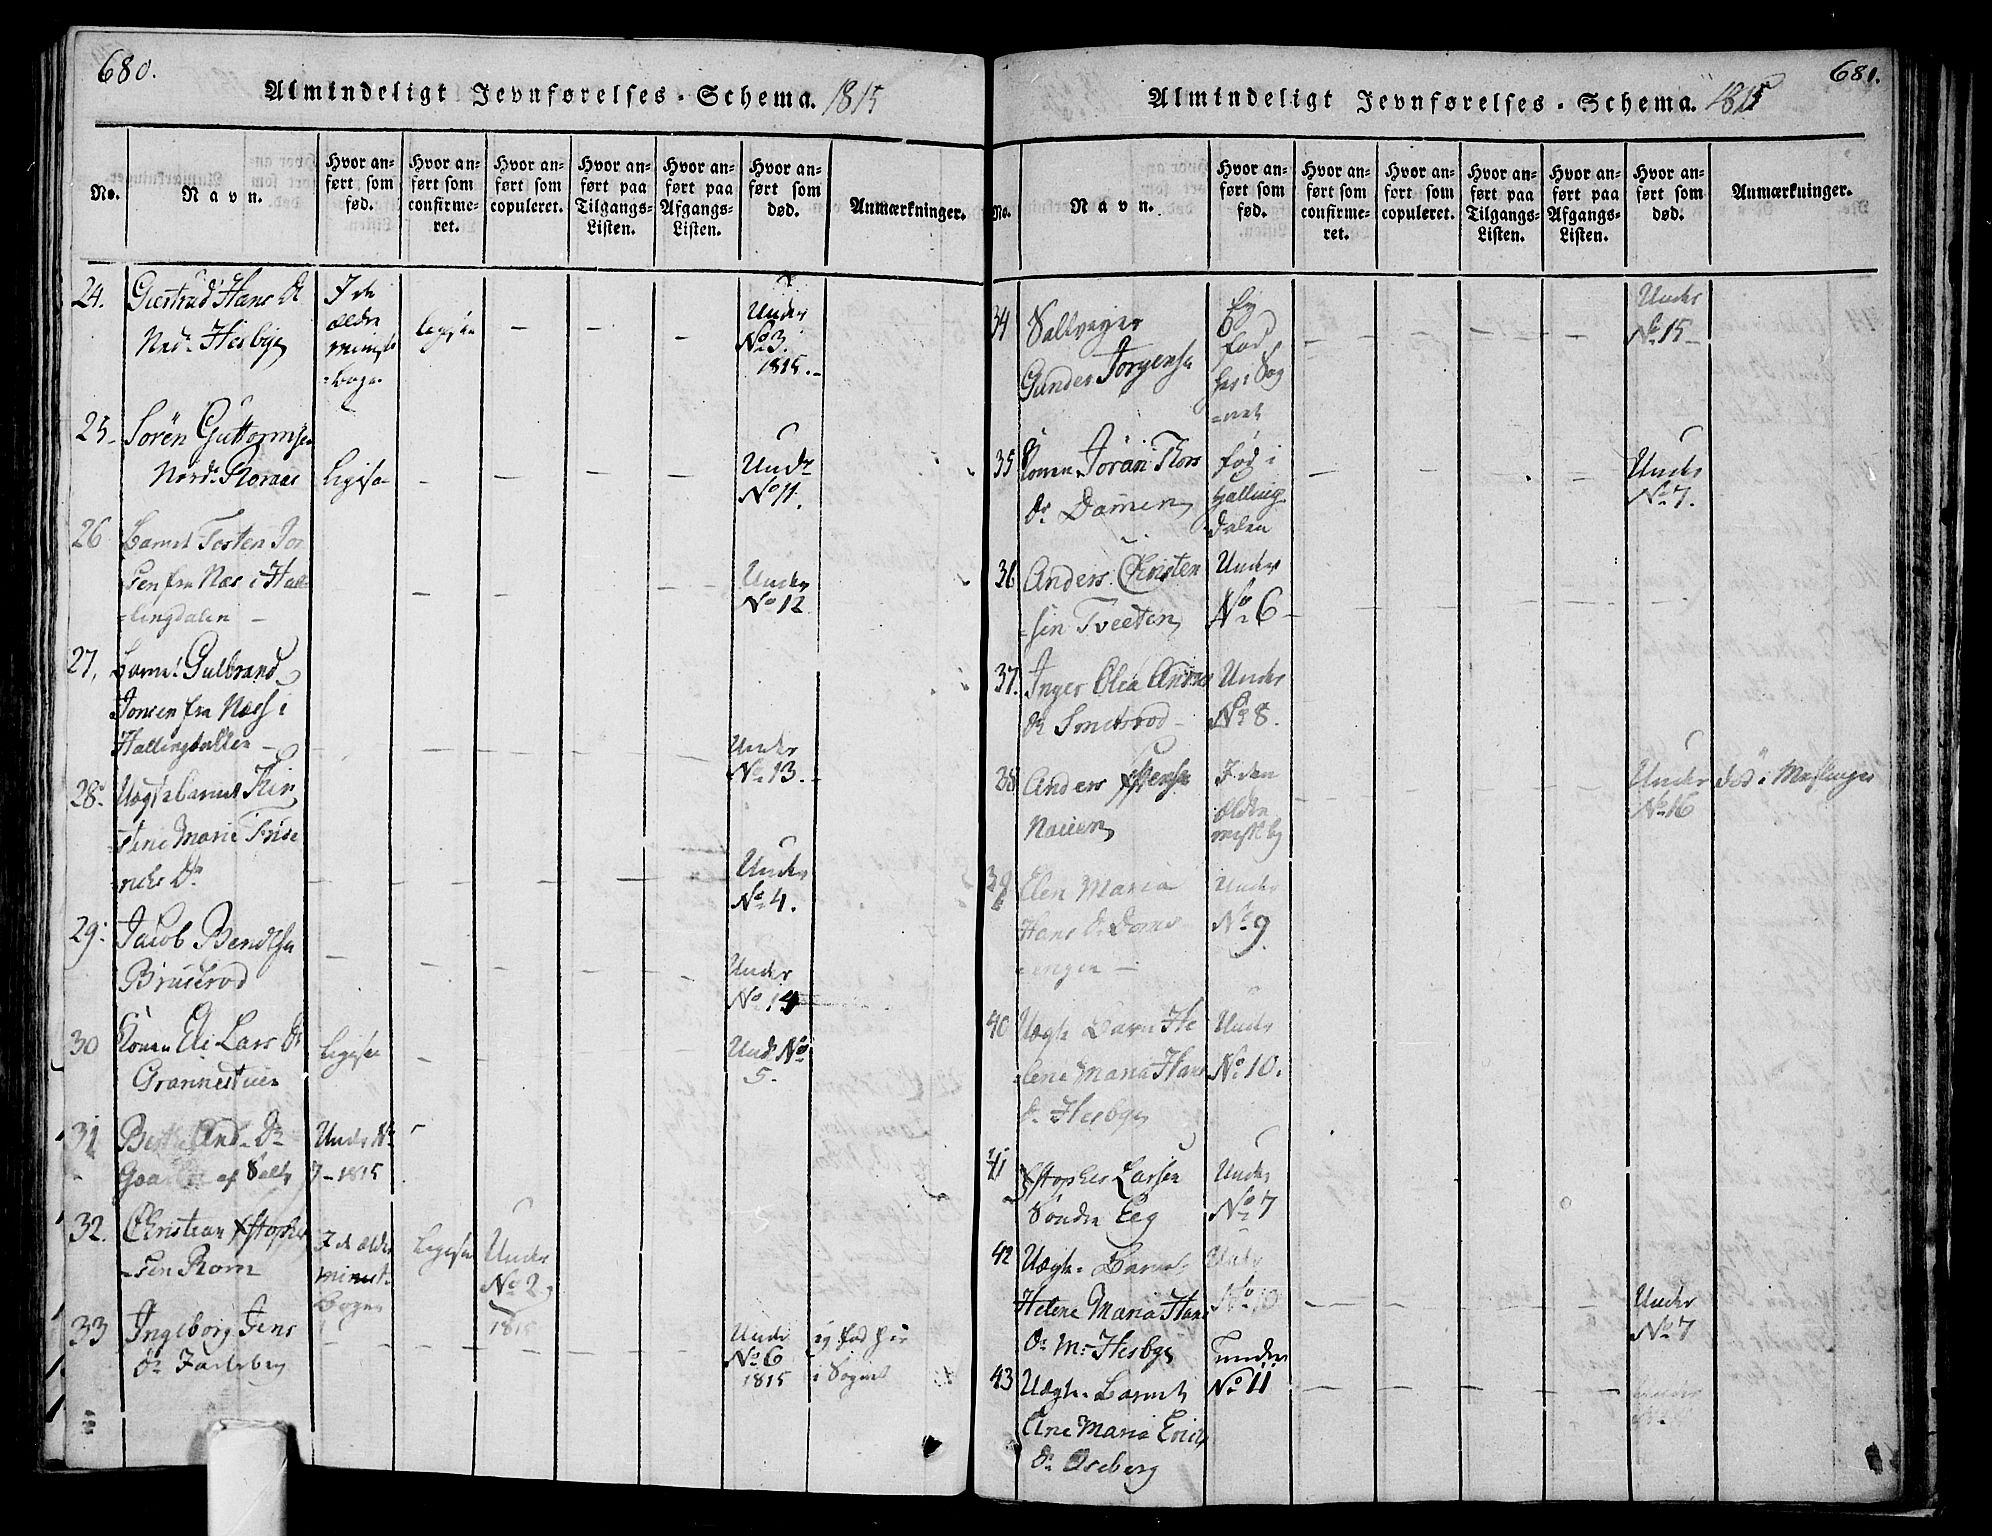 680.
Almindeligt Jevnførelses-Schema. 1815
No.
Navn.
Hvor an-
ført som
fød.
Hvor an-
ført som
confirme-
ret.
Hvor an-
ført som
copuleret.
Hvor an-
ført paa
Tilgangs-
Listen.
Hvor an-
ført paa
Afgangs-
Listen.
Hvor an-
ført som
død.
Anmærkninger.
24. Giertrud Hans Dr
Nedr Hesbye
I de
ældre
Under
No 3.
1815.
25 Søren Guttormsen
Nord
Ligesa
Undr
No 11.
26 Barnet Torsten
sen fra Næs i Hal-
lingdalen
Under
No 12
27. Barnet Gulbrand
Jonsen fra Næss i
Hallingdallen
Under
No 13.
28. Uægte barnet Kir
stine Marie Fride
richs Dr
Under
No 4.
29. Jacob Bendtsen
Bruserod
Under
No 14
30 Konen Eli Lars Dr
Grannestuen
Und No
5.
31 And. Dr
af
Under No
7 1815
32. Christian Xstophers
sen Rom
I de ældre
minist
Bogen
Ligesaa
Under
No 2
1815
33 Ingeborg Jens
Dr Jarlsberg
Under
No 6
1815
ey fød her
i Sognet
681.
Almindeligt Jevnførelses-Schema. 1815
No.
Navn.
Hvor an-
ført som
fød.
Hvor an-
ført som
confirme-
ret.
Hvor an-
ført som
copuleret.
Hvor an-
ført paa
Tilgangs-
Listen.
Hvor an-
ført paa
Afgangs-
Listen.
Hvor an-
ført som
død.
Anmærkninger.
34
Gunder Jorgensen
Ey
fød
her i Sog
net
Under
No 15
35 Konen Jöran Thors
Dr Damen
fød i
Halling
dalen
Under
No 7.
36 Anders Christen
sen Tveeten
Under
No 6
37. Inger Olea Anders
Dr Smidsrod
Under
No 8.
38 Anders
Nauen
I den
ældre
Under
No 16
død i
39 Elen Maria
Hans Dr Doms
engen
Under
No 9
40 Uægte Barn He
lene Maria Hans
Dr Hesbye
Under
No 10.
41 Xstopher Larsen
Søndre Eeg
Under
No 7
42 Uægte Barnet
Helene Maria Hans
Dr M. Hesbye
Under
No 10
Under
No 7
43 Uægte Barnet
Ane Maria Erich
Dr Oseberg
Under
No 11